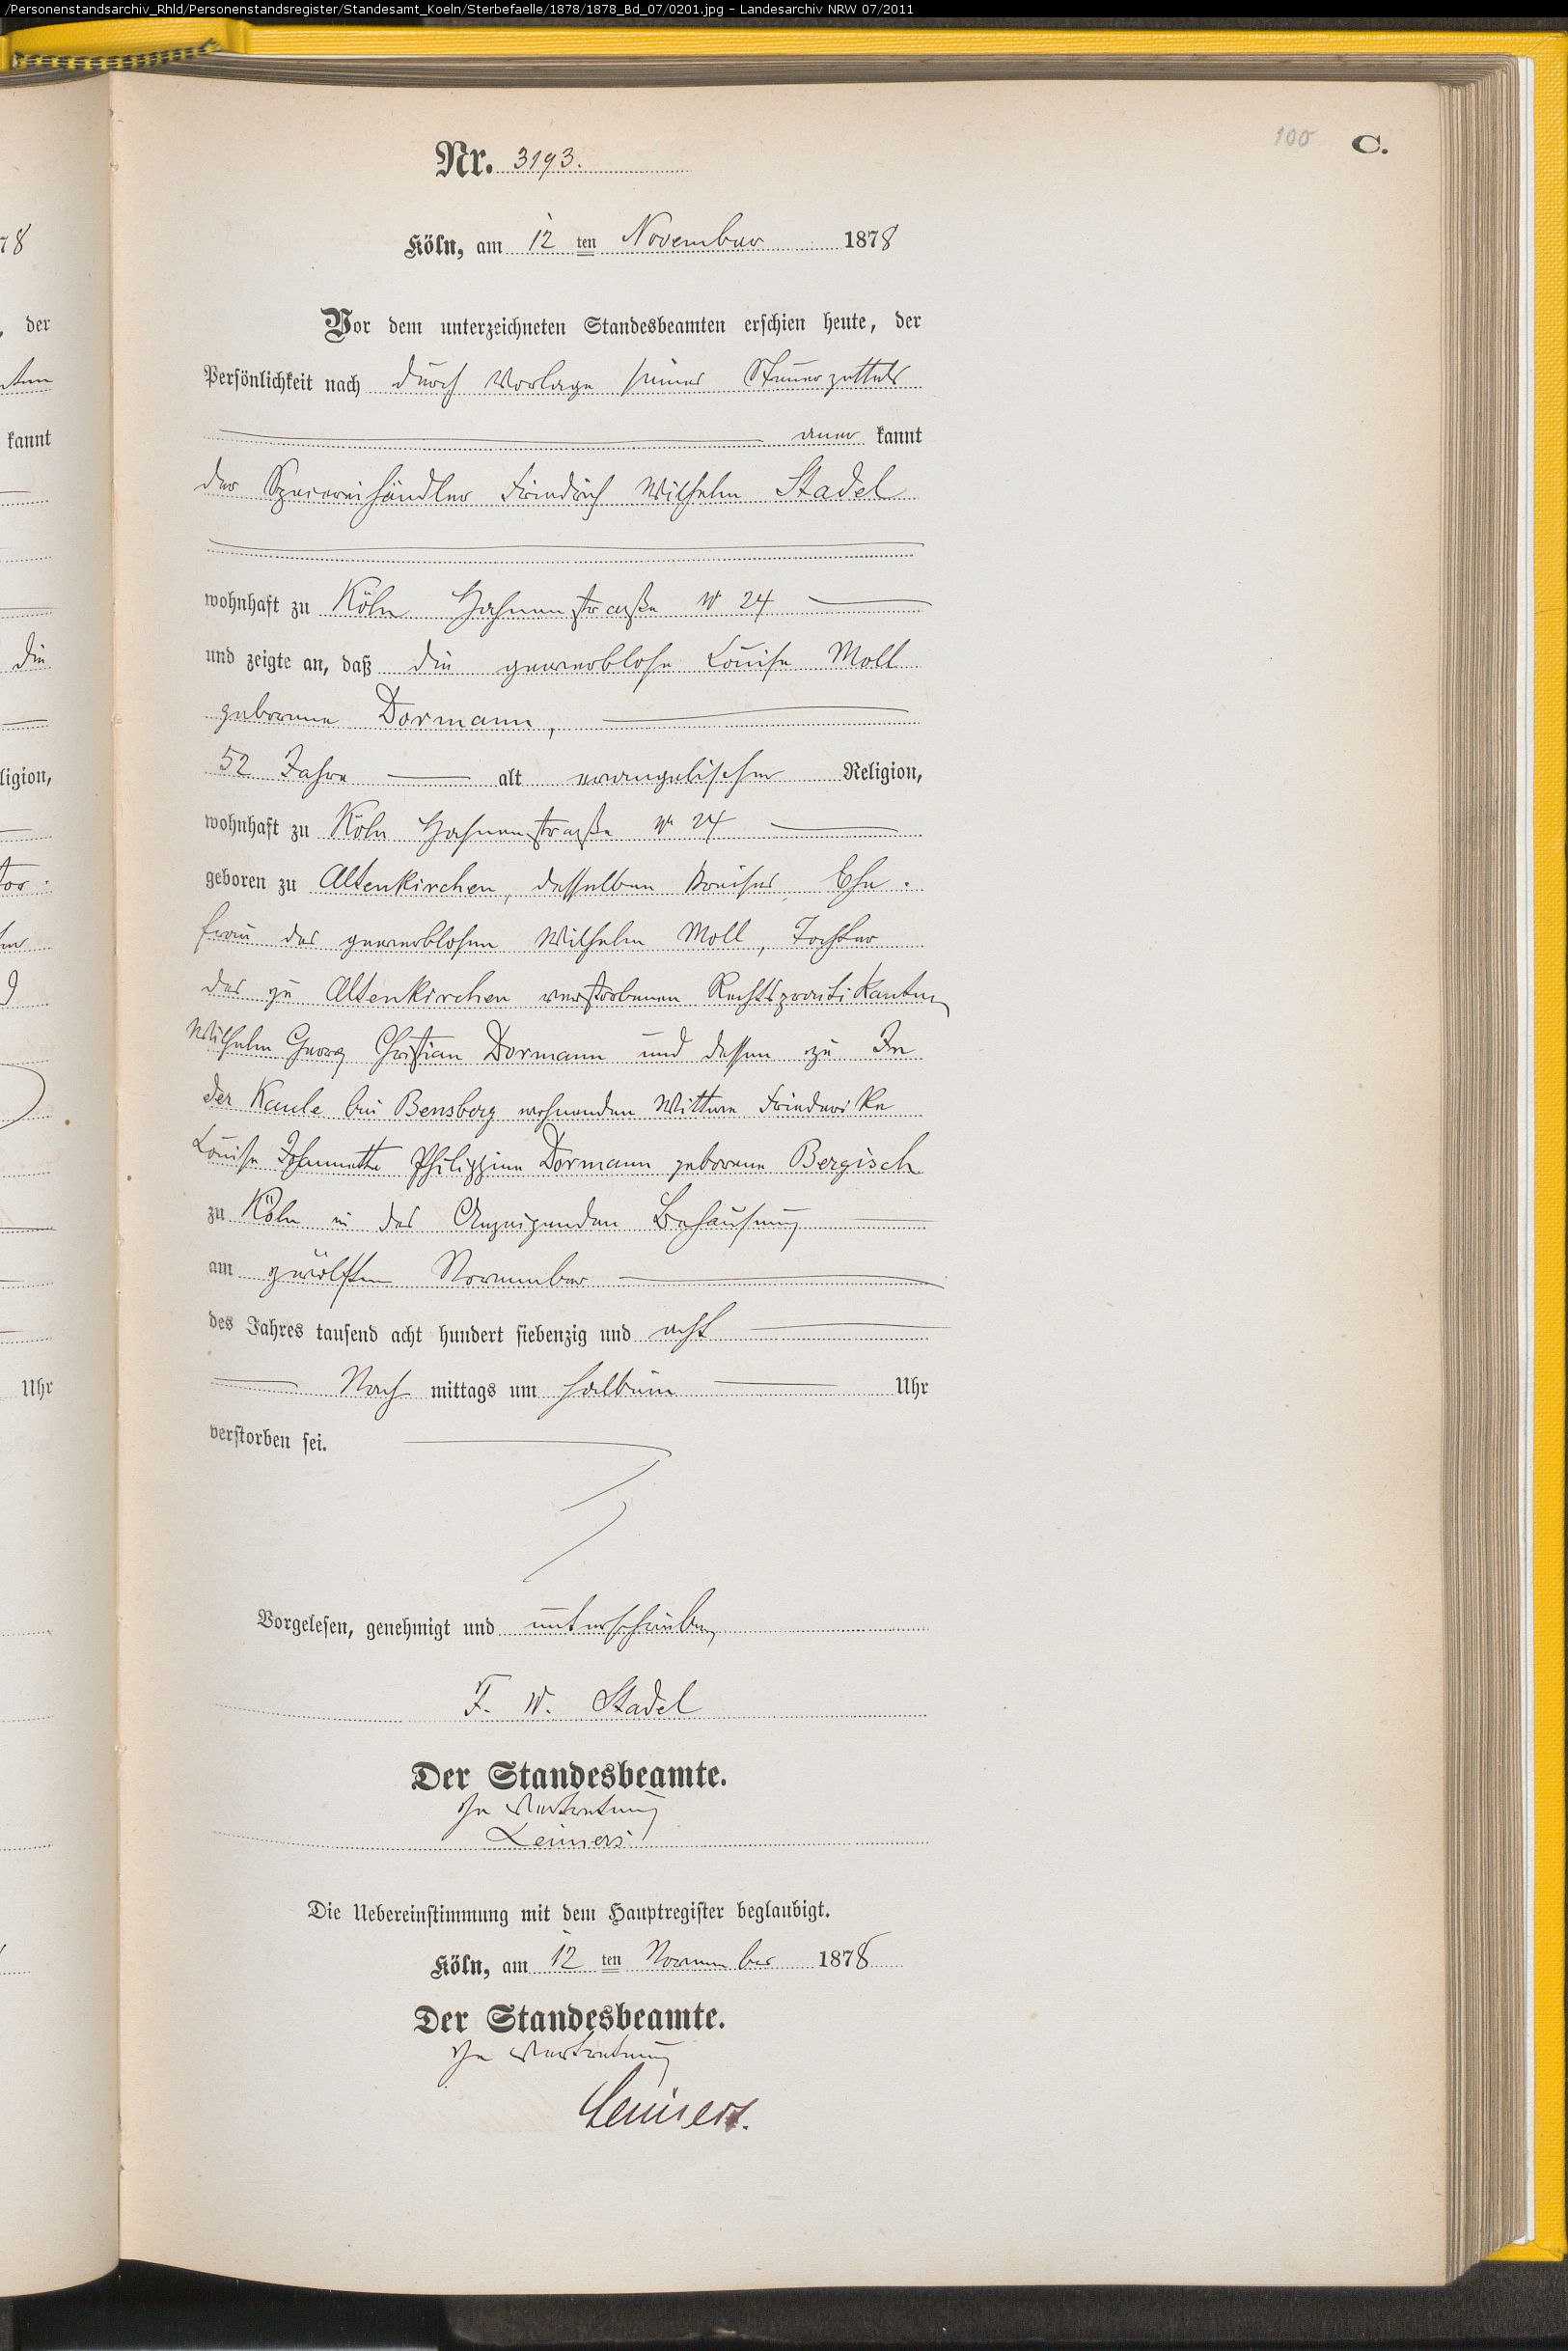 /Personenstandsarchiv_Rhld/Personenstandsregister/Standesamt_Koeln/Sterbefaelle/1878/1878_Bd_07/0201.jpg - Landesarchiv NRW 07/2011
100 C.
Nr. 3193.
Köln, am 12 ten November 1878
Vor dem unterzeichneten Standesbeamten erschien heute, der
Persönlichkeit nach durch Vorlage seines Steuerzettels
aner kannt
der Spezereihändler Friedrich Wilhelm Stadel
wohnhaft zu Köln Hahnenstraße No 24
und zeigte an, daß die gewerblose Louise Moll
geborene Dormann,
52 Jahre alt evangelischer Religion,
wohnhaft zu Köln Hahnenstraße No 24
geboren zu Altenkirchen, desselben Kreises, Ehe-
frau des gewerblosen Wilhelm Moll, Tochter
des zu Altenkirchen verstorbenen Rechtspraktikanten
Wilhelm Georg Christian Dormann und dessen zu In
der Kaule bei Bensberg wohnenden Wittwe Friederike
Louise Johannette Philippine Dormann geborene Bergisch
zu Köln in des Anzeigenden Behausung
am zwölften November
des Jahres tausend acht hundert siebenzig und acht
Nach mittags um halbein Uhr
verstorben sei.
Vorgelesen, genehmigt und unterschrieben
F. W. Stadel
Der Standesbeamte.
In Vertretung
Die Uebereinstimmung mit dem Hauptregister beglaubigt.
Köln, am 12 ten November 1878
Der Standesbeamte.
In Vertretung
78
der
kannt
die
ligion,
Uhr